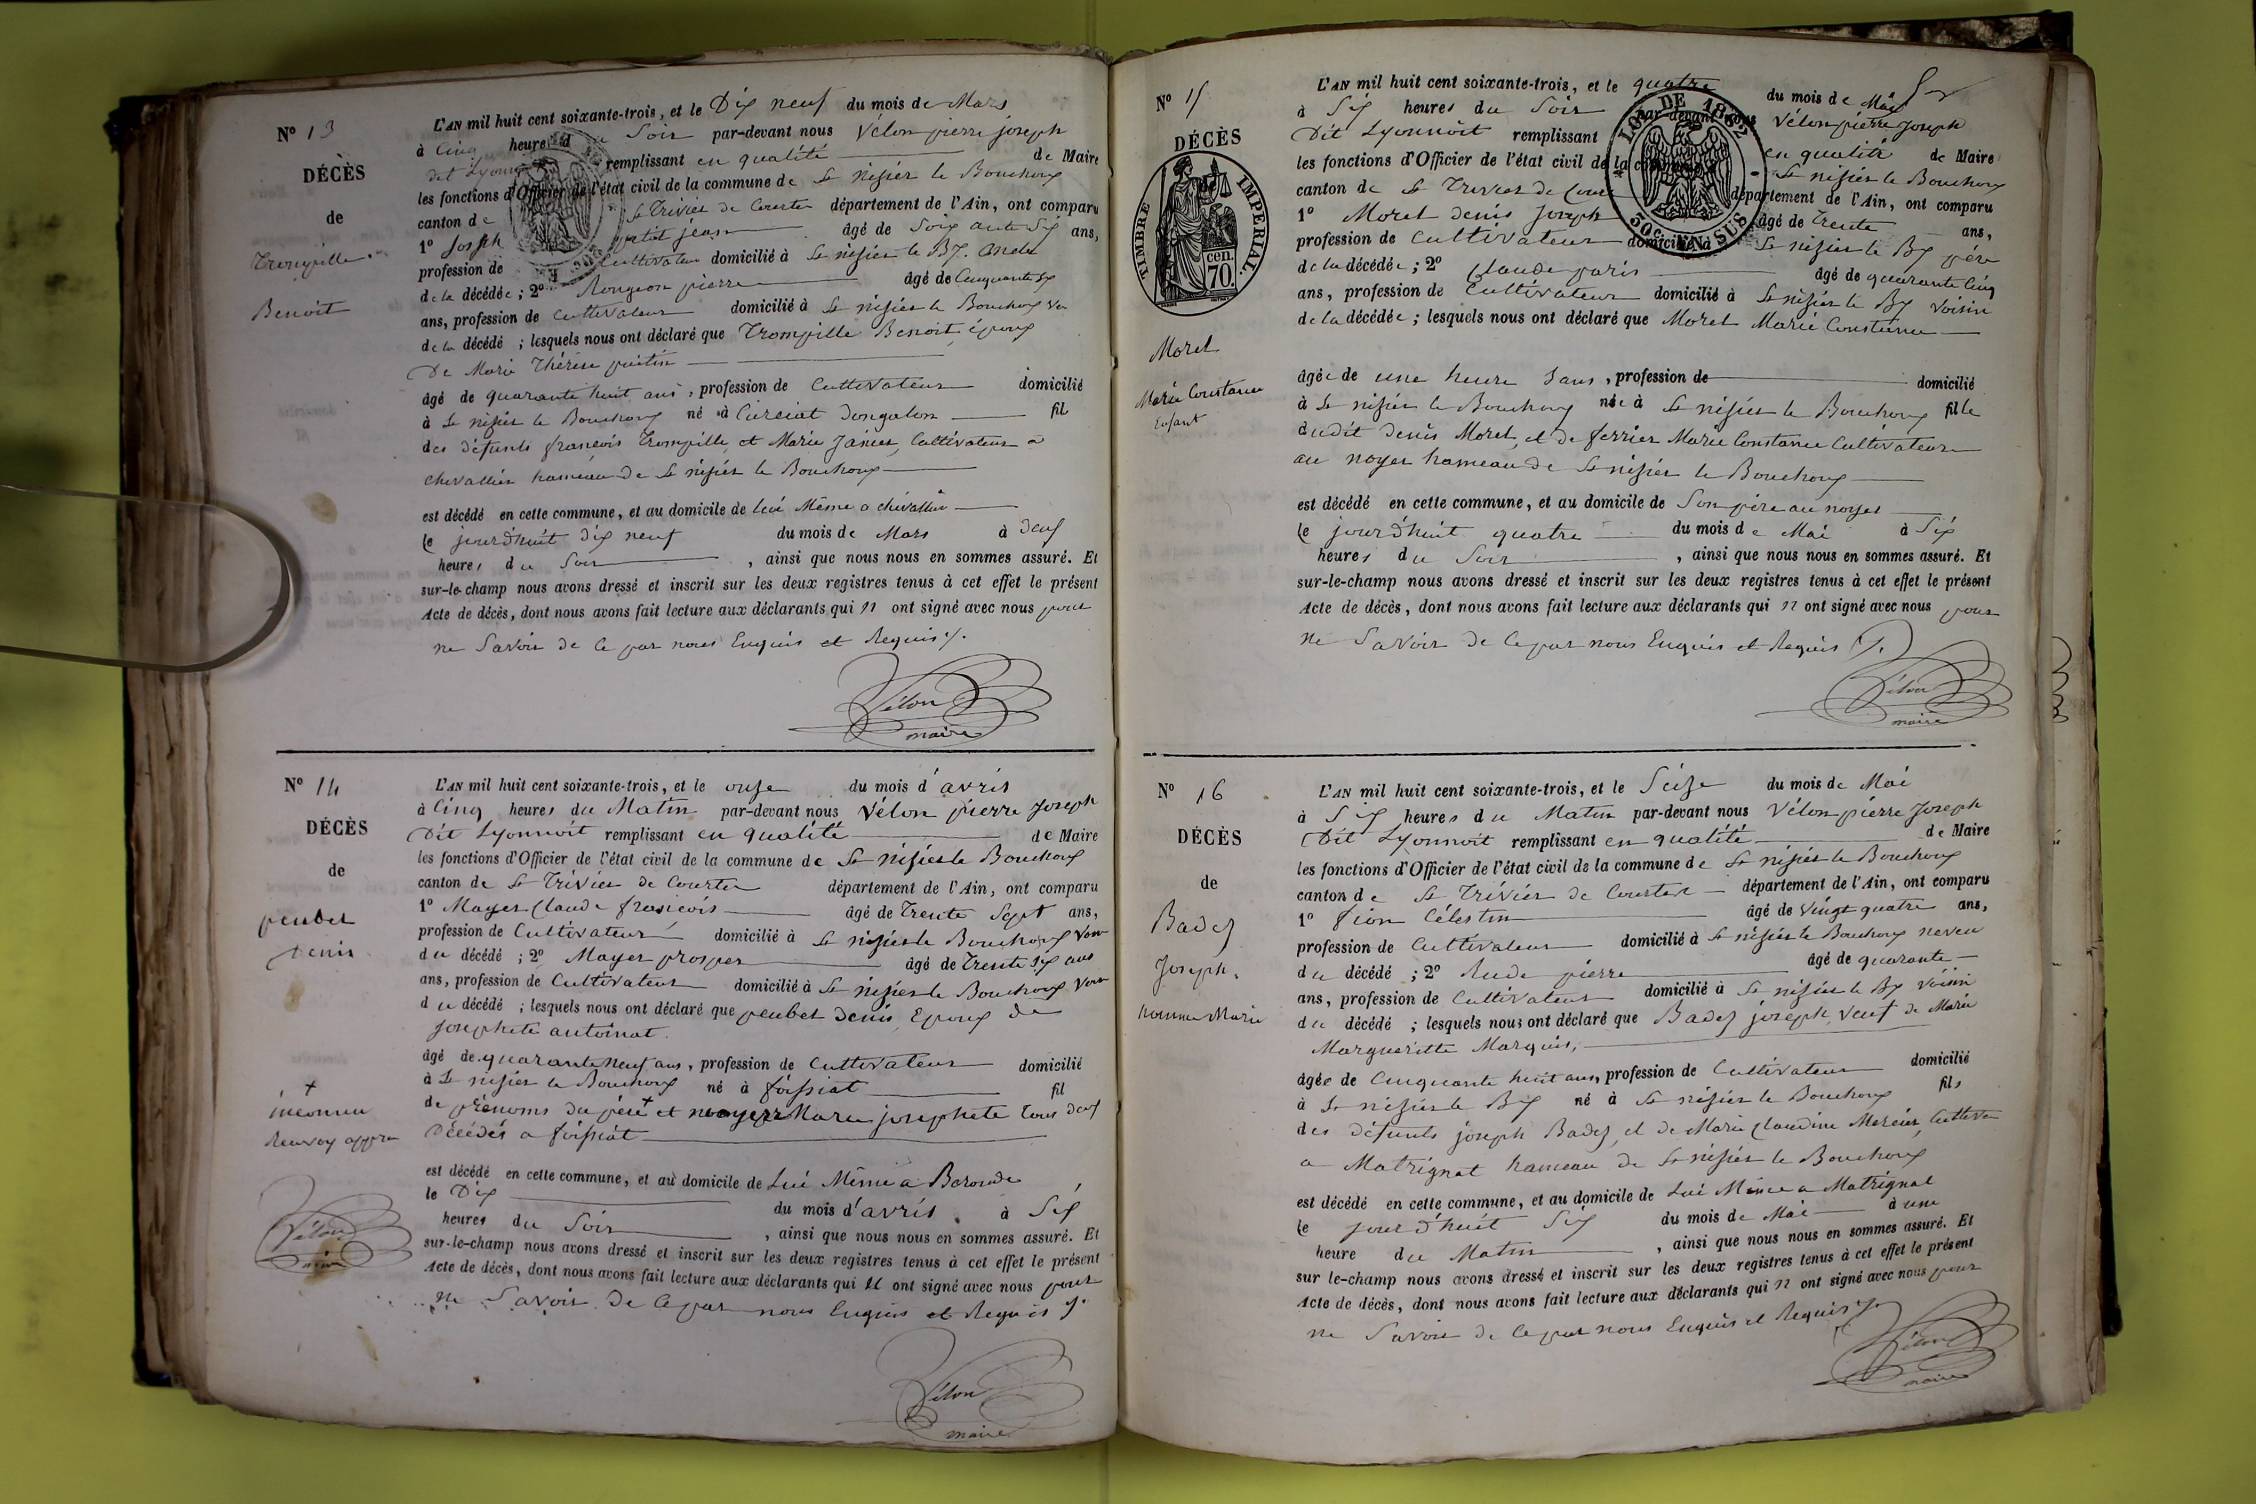 N° 13
DÉCÈS
de
Trompille
Benoit
L'AN mil huit cent soixante-trois, et le Dix neuf du mois de Mars
à Cinq heures du Soir par-devant nous Vélon pierre joseph
dit Lyonnoit remplissant en qualité de Maire
les fonctions d'Officier de l'état civil de la commune de St nisier le Bouchoux
canton de St Trivier de Courtes département de l'Ain, ont comparu
1° Joseph petit jean âgé de Soix ante Six ans,
profession de Cultivateur domicilié à St nisier le Bx. oncle
de la décédée ; 2° Rongeon pierre âgé de Cinquante six
ans, profession de Cultivateur domicilié à St nisier le Bouchoux
de la décédé ; lesquels nous ont déclaré que Trompille Benoit époux
De Marie Thérèse
âgé de quarante huit ans, profession de Cultivateur domicilié
à St nisier le Bouchoux né à Curciat dongalon fil
des défunts françois Trompille et Marie Janier, Cultivateur a
chevallier hameau de St nisier le Bouchoux
est décédé en cette commune, et au domicile de lui Même a chevallier
le jourd'huit dix neuf du mois de Mars à deux
heures du Soir , ainsi que nous nous en sommes assuré. Et
sur-le-champ nous avons dressé et inscrit sur les deux registres tenus à cet effet le présent
Acte de décès, dont nous avons fait lecture aux déclarants qui n ont signé avec nous pour
ne Savoir de Ce par nous Enquis et Requis
Vélon
maire
N° 14
DÉCÈS
de
peubet
Denis
+
inconnu
Renvoy appro
Vélon
maire
L'AN mil huit cent soixante-trois, et le onze du mois d'avril
à Cinq heures du Matin par-devant nous Vélon pierre Joseph
Dit Lyonnoit remplissant en qualité de Maire
les fonctions d'Officier de l'état civil de la commune de St nisier le Bouchoux
canton de St Trivier de Courtes département de l'Ain, ont comparu
1° Mayer Claude francois âgé de Trente Sept ans,
profession de Cultivateur domicilié à St nisier le Bouchoux voisin
du décédé ; 2° Mayer prosper âgé de Trente six ans
ans, profession de Cultivateur domicilié à St nisier le Bouchoux voisin
du décédé ; lesquels nous ont déclaré que peubet denis, Epoux de
josephete antoinat.
âgé de quarante Neuf ans, profession de Cultivateur domicilié
à St nisier le Bouchoux né à foissiat fil
de prénoms du père + et Marie josephete Tous deux
Décédés a foissiat
est décédé en cette commune, et au domicile de Lui Même a Baronde
le Dix du mois d'avril à Six
heures du Soir , ainsi que nous nous en sommes assuré. Et
sur-le-champ nous avons dressé et inscrit sur les deux registres tenus à cet effet le présent
Acte de décès, dont nous avons fait lecture aux déclarants qui n ont signé avec nous pour
ne Savoir de Ce par nous Enquis et Requis
Vélon
maire
N° 15
DÉCÈS
TIMBRE IMPERIAL.
cen.
70.
Morel
Marie Constance
Enfant
LOI DE 1862
30c. EN SUS
L'AN mil huit cent soixante-trois, et le quatre du mois de Mai
à Six heures du Soir par-devant nous Vélon pierre Joseph
Dit Lyonnoit remplissant en qualité de Maire
les fonctions d'Officier de l'état civil de la commune St nisier le Bouchoux
canton de St Trivier de Courtes département de l'Ain, ont comparu
1° Morel denis Joseph âgé de Trente ans,
profession de Cultivateur domicilié à St nisier le Bx père
de la décédée ; 2° Claude paris âgé de quarante Cinq
ans, profession de Cultivateur domicilié à St nisier le Bx voisin
de la décédée ; lesquels nous ont déclaré que Morel Marie Constance
âgée de une heure Sans, profession de domicilié
à St nisier le Bouchoux née à St nisier le Bouchoux fille
dudit denis Morel, et de ferrier Marie Constance Cultivateur
au noyer hameau de St nisier le Bouchoux
est décédé en cette commune, et au domicile de Son père au noyer
le jourd'huit quatre du mois de Mai à Six
heures du Soir , ainsi que nous nous en sommes assuré. Et
sur-le-champ nous avons dressé et inscrit sur les deux registres tenus à cet effet le présent
Acte de décès, dont nous avons fait lecture aux déclarants qui n ont signé avec nous pour
ne Savoir de Ce par nous Enquis et Requis
Vélon
maire
N° 16
DÉCÈS
de
Badez
Joseph.
homme Marié
L'AN mil huit cent soixante-trois, et le Seize du mois de Mai
à Six heures du Matin par-devant nous Vélon pierre Joseph
Dit Lyonnoit remplissant en qualité de Maire
les fonctions d'Officier de l'état civil de la commune de St nisier le Bouchoux
canton de St Trivier de Courtes département de l'Ain, ont comparu
1° fion Célestin âgé de vingt quatre ans,
profession de Cultivateur domicilié à St nisier le Bouchoux neveu
du décédé ; 2° Rude pierre âgé de quarante
ans, profession de Cultivateur domicilié à St nisier le Bx voisin
du décédé ; lesquels nous ont déclaré que Badez joseph, veuf de Marie
Margueritte Marquis,
âgée de Cinquante huit ans, profession de Cultivateur domicilié
à St nisier le Bx né à St nisier le Bouchoux fils
des défunts joseph Badez, et de Marie Claudine Mercier, Cultiva
a Matrignat hameau de St nisier le Bouchoux
est décédé en cette commune, et au domicile de Lui Même a Matrignat
le jour d'huit Six du mois de Mai à une
heure du Matin , ainsi que nous nous en sommes assuré. Et
sur le-champ nous avons dressé et inscrit sur les deux registres tenus à cet effet le présent
Acte de décès, dont nous avons fait lecture aux déclarants qui n ont signé avec nous pour
ne Savoir de Ce par nous Enquis et Requis
Vélon
maire